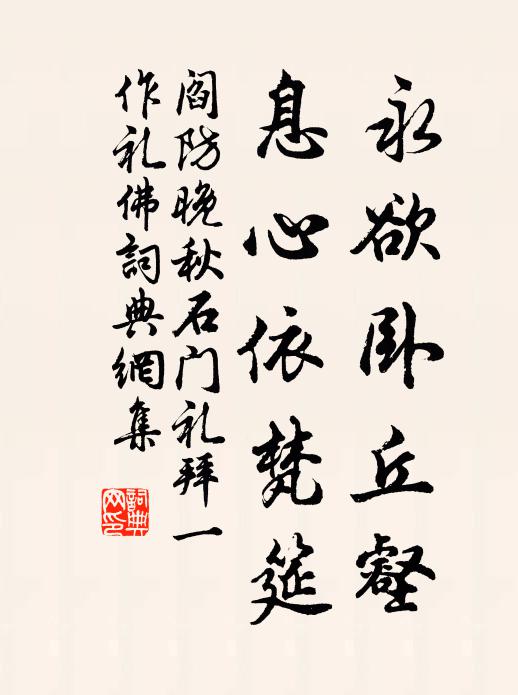 永欲卧丘壑
息心依梵筵
阎防晚秋石门礼拜一
作礼佛詞典網集
詞典网印